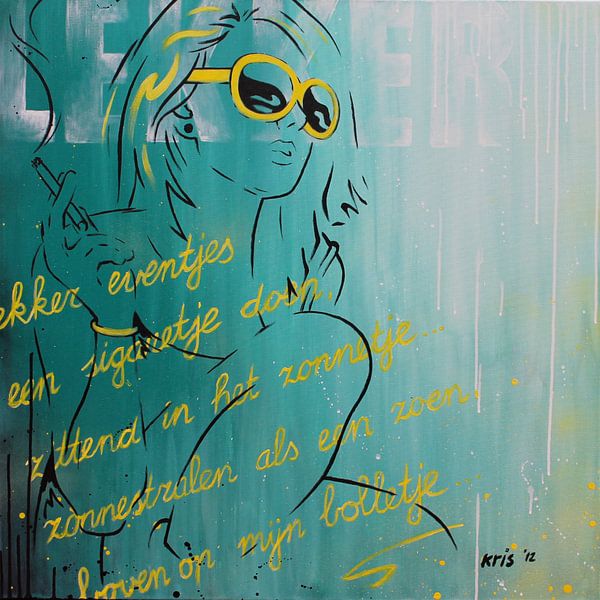 LEKKER
ekker eventjes
een sigaretje doen,
zittend in het zonnetje...
zonnestralen als een zoen,
boven op mijn bolletje...
kris '12